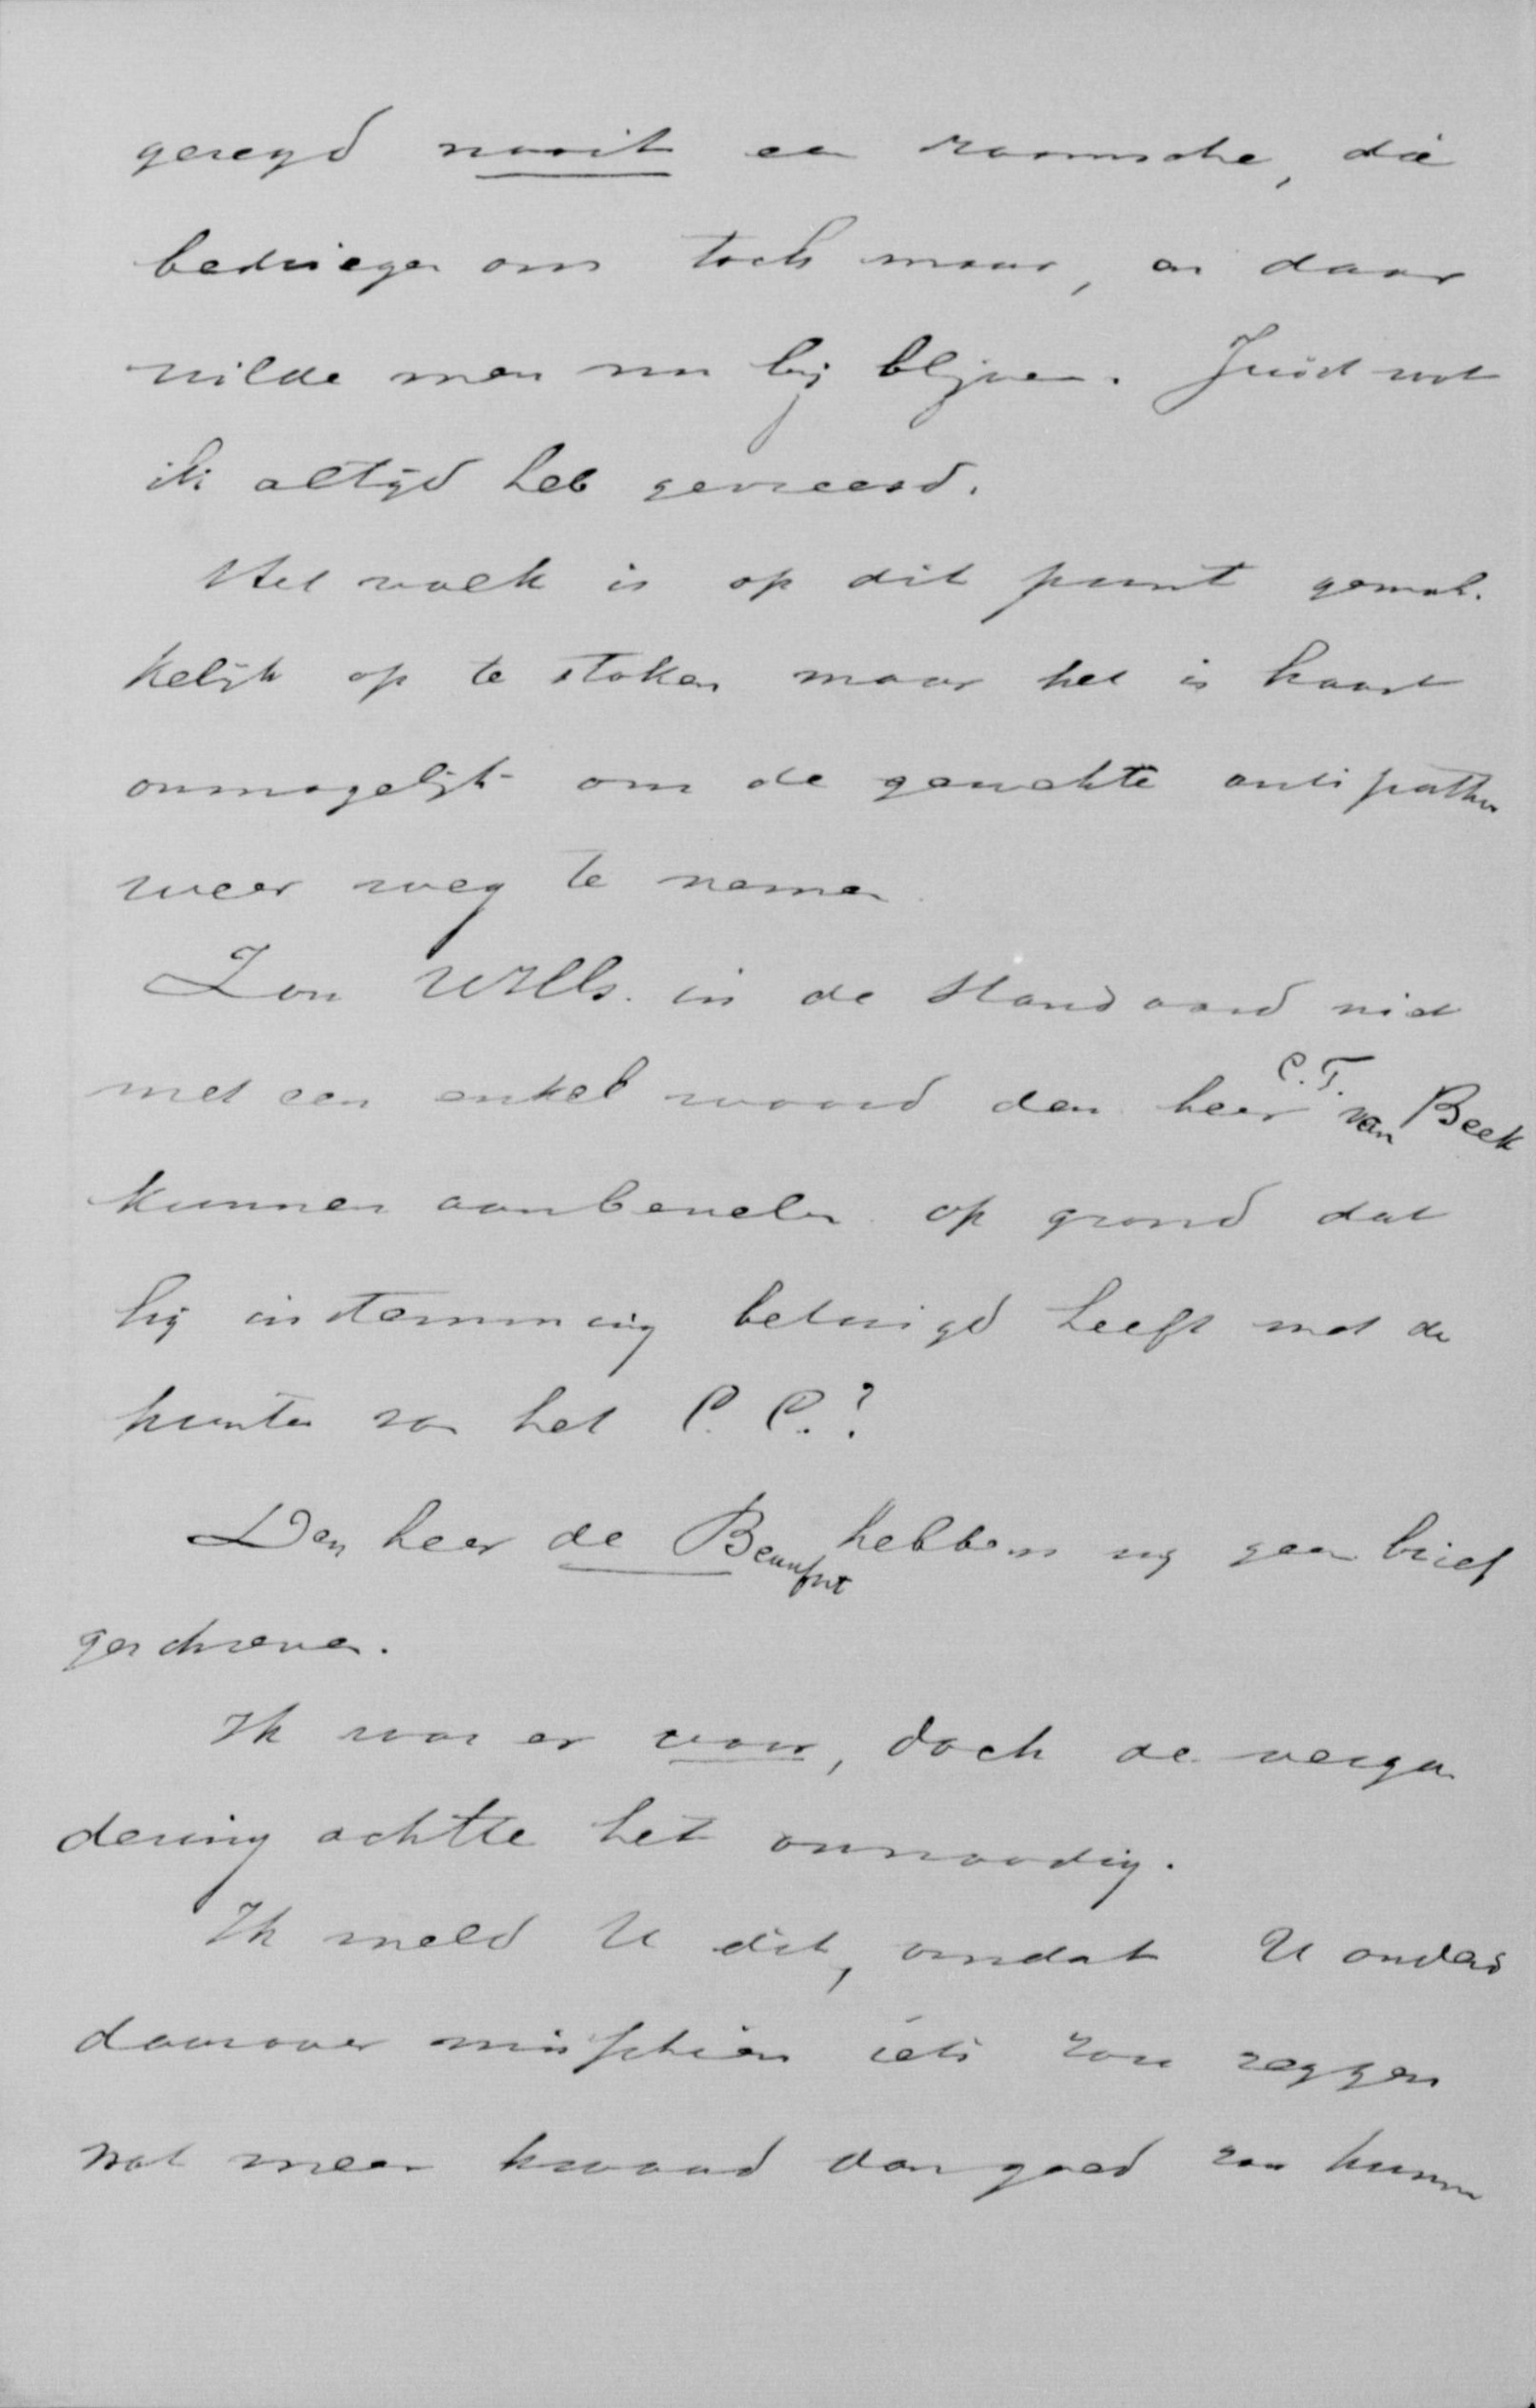 gezegd nooit een roomsche, die
bedriegen ons toch maar, en daar
wilde men nu bij blijven. Juist wat
ik altijd heb gevreesd.
Het volk is op dit punt gemak-
kelijk op te stoken maar het is haast
onmogelijk om de gewekte antipathie
weer weg te nemen
Zou UHEG. in de Standaard niet
met een enkel woord den heer C.T. van Beek
kunnen aanbevelen op grond dat
hij instemming betuigd heeft met de
punten van het C.C.?
Den heer de Beaufort hebben wij geen brief
geschreven.
Ik was er voor, doch de verga
dering achtte het onnoodig.
Ik meld U dit, omdat U anders
daarover misschien iets zou zeggen
wat meer kwaad dan goed zou kunnen